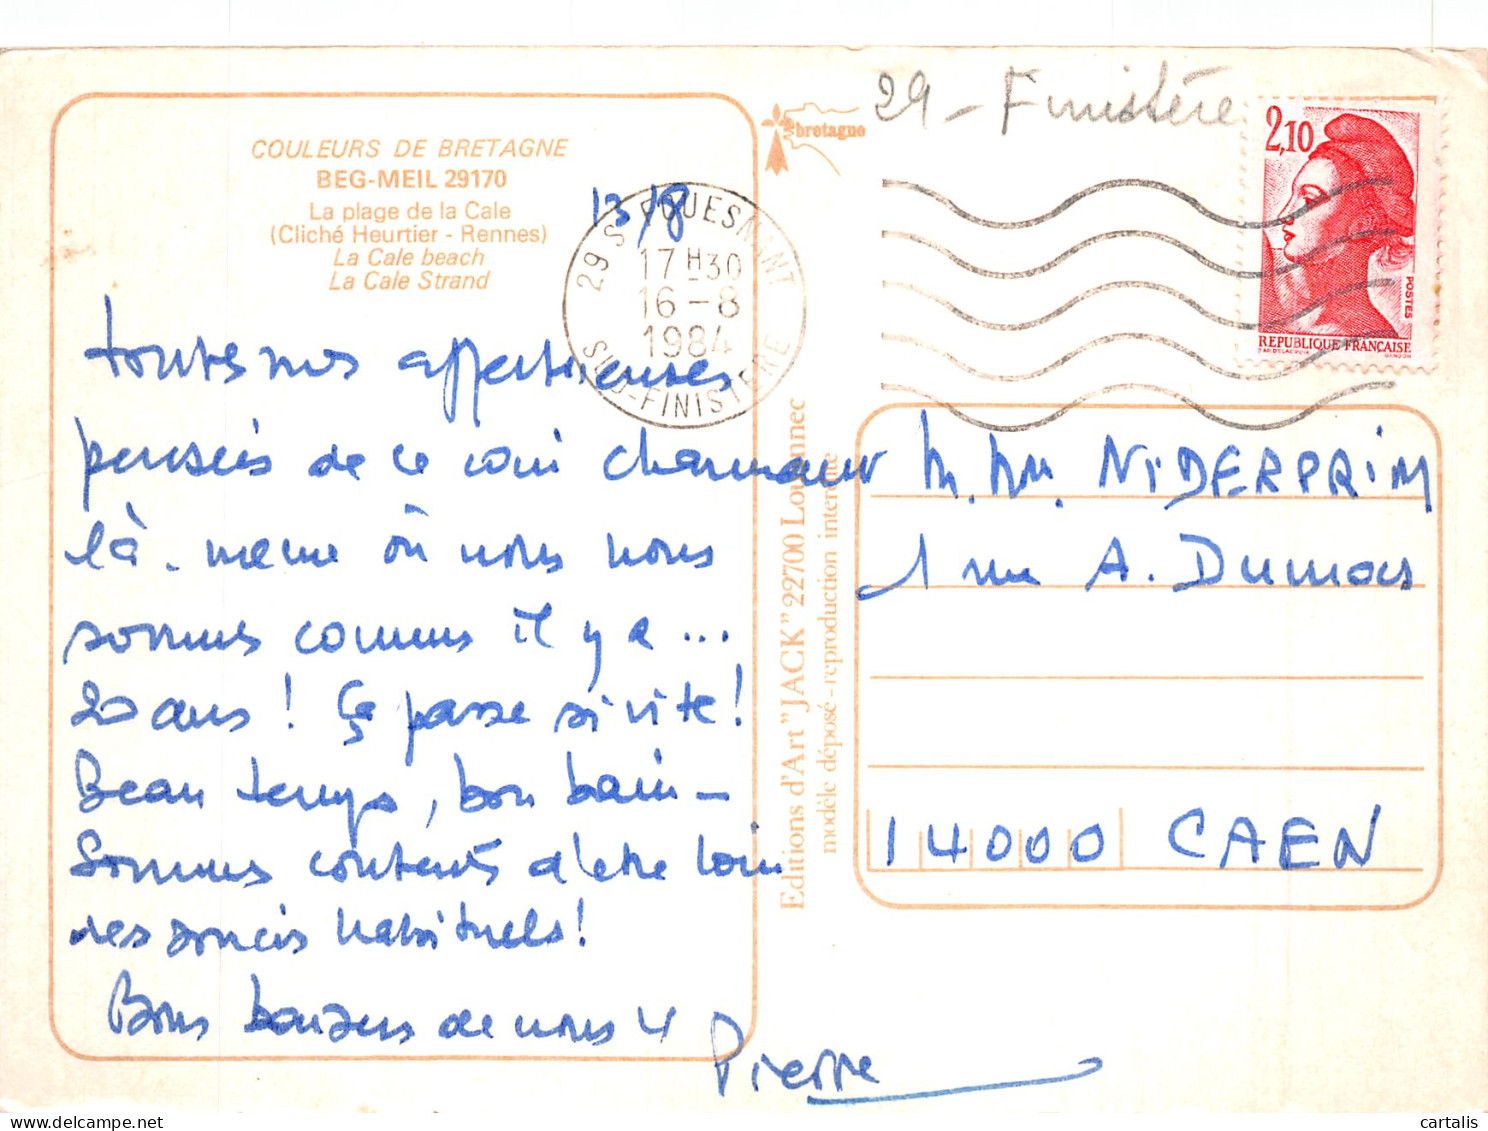 29 - Finistère
COULEURS DE BRETAGNE
BEG-MEIL 29170
La plage de la Cale
(Cliché Heurtier - Rennes)
La Cale beach
La Cale Strand
bretagne
2,10
POSTES
REPUBLIQUE FRANÇAISE
29 S FOUESNANT
17 H 30
16 - 8
1984
SUD-FINISTERE
13/8
toutes nos affectueuses
pensées de ce coin charmant
là. même où nous nous
sommes connus il y a ...
20 ans ! Ça passe si vite !
Beau temps, bon bain -
Sommes contents d'être loin
des soucis habituels !
Bons baisers de nous 4
Pierre
Editions d'Art "JACK" 22700 Louannec
modèle déposé - reproduction interdite
M. Mm. NIDERPRIM
1 rue A. Dumas
14000 CAEN
cartalis